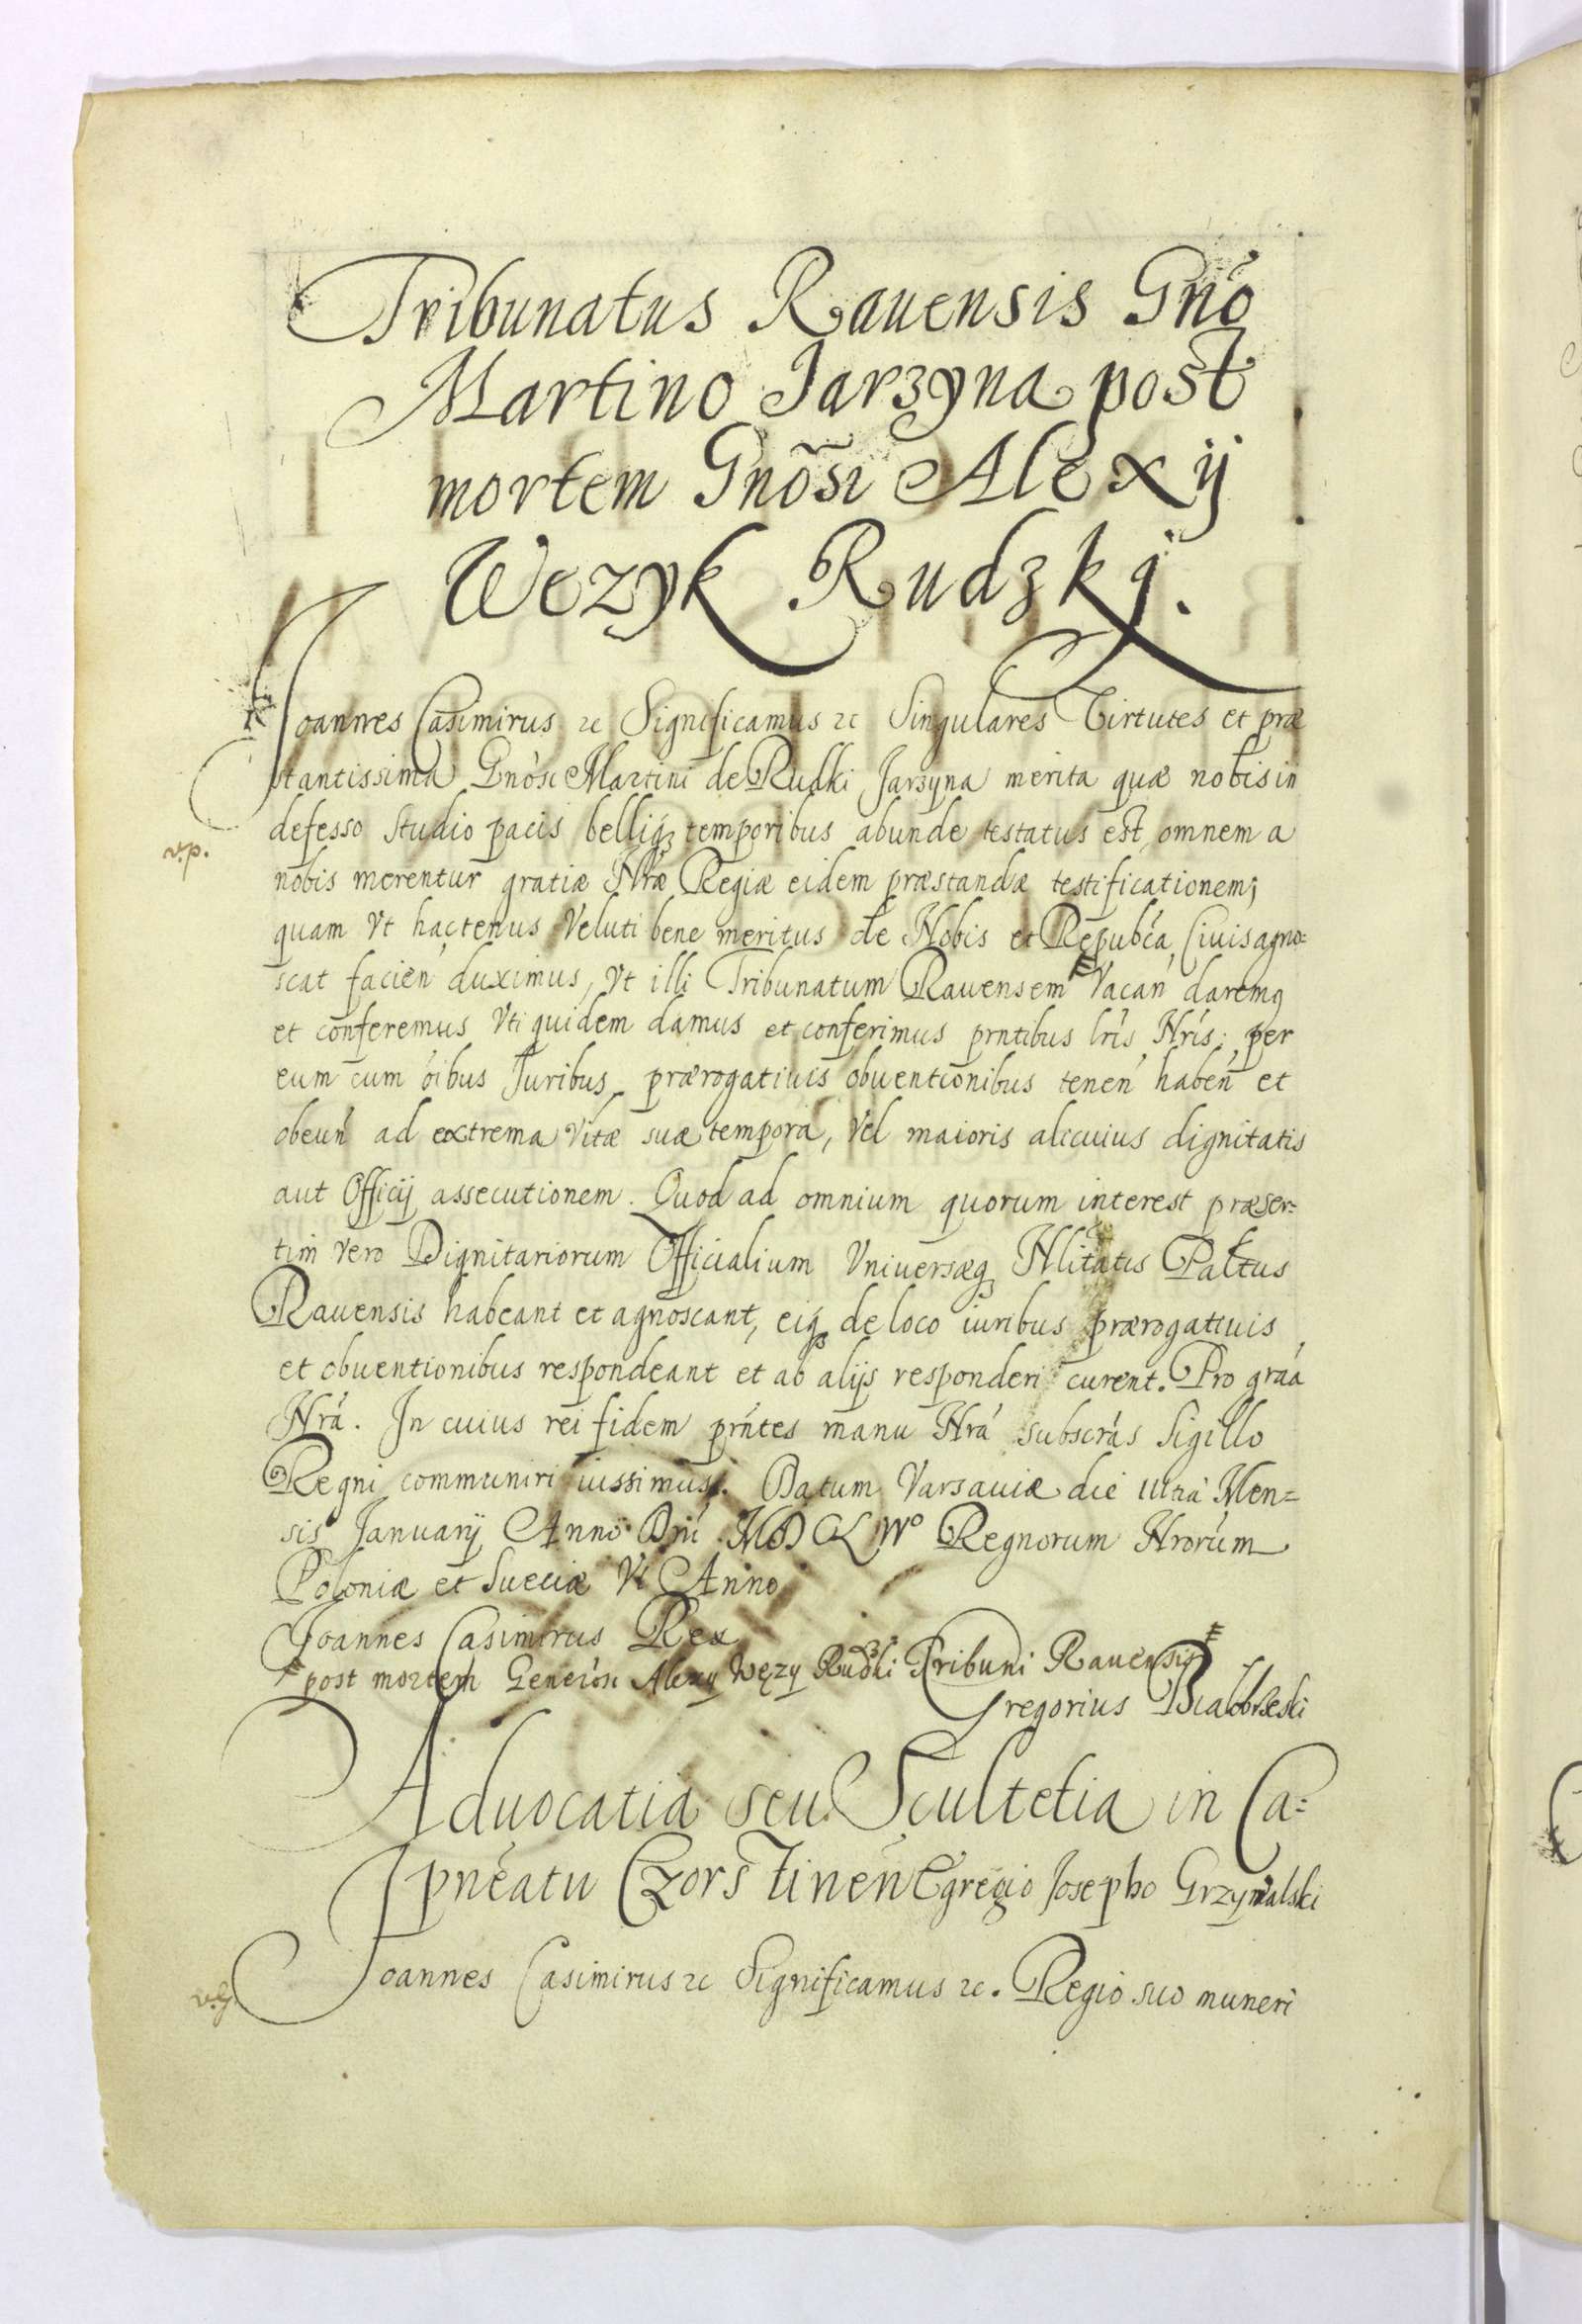 Tribunatus Rauensis Gnõ
Martino Jarzyna post
mortem Gnõsi Alexij
Wezyk Rudzkj.
Joannes Casimirus ꝛc Significamus ꝛc Singulares Virtutes et præ
stantissima Gnósi Martini de Rudki Jarzyna merita quæ nobis in
defesso studio pacis belliqꝫ temporibus abunde testatus est, omnem a
v.p.
nobis merentur gratiæ Nræ Regiæ eidem præstandæ testificationem;
quam Vt hactenus Veluti bene meritus de Nobis et Repubca Ciuis agno=
scat facień duximus, Vt illi Tribunatum Rauensem Vacań daremꝯ
et conferemus Vti quidem damus et conferimus prntibus lris Nris; per
eum cum oibus Juribus, prærogatiuis obuentionibus teneń habeń et
obeuń ad extrema Vitæ suæ tempora, Vel maioris alicuius dignitatis
aut Officij assecutionem. Quod ad omnium quorum interest præser=
tim vero Dignitariorum Officialium Vniuersæqꝫ Nlitatis Paltus
Rauensis habeant et agnoscant, eiqꝫ de loco iuribus prærogatiuis
et obuentionibus respondeant et ab alijs responderi curent. Pro gráa
Nrá. In cuius rei fidem prńtes manu Nrá subscrás Sigillo
Regni communiri iussimus. Datum Varsauiæ die IIItia Men=
sis Januarij Anno Dni MDCLIVo Regnorum Nrorúm
Poloniæ et Sueciæ VI Anno
Joannes Casimirus Rex
post mortem Generósi Alexy Węzy Rudzki Tribuni Rauensis
Gregorius Białobrzeski
Aduocatia seu Scultetia in Ca=
pnéatu CzorsTineń Egregio Josepho Grzymalski
Joannes Casimirus ꝛc Significamus ꝛc. Regio suo muneri